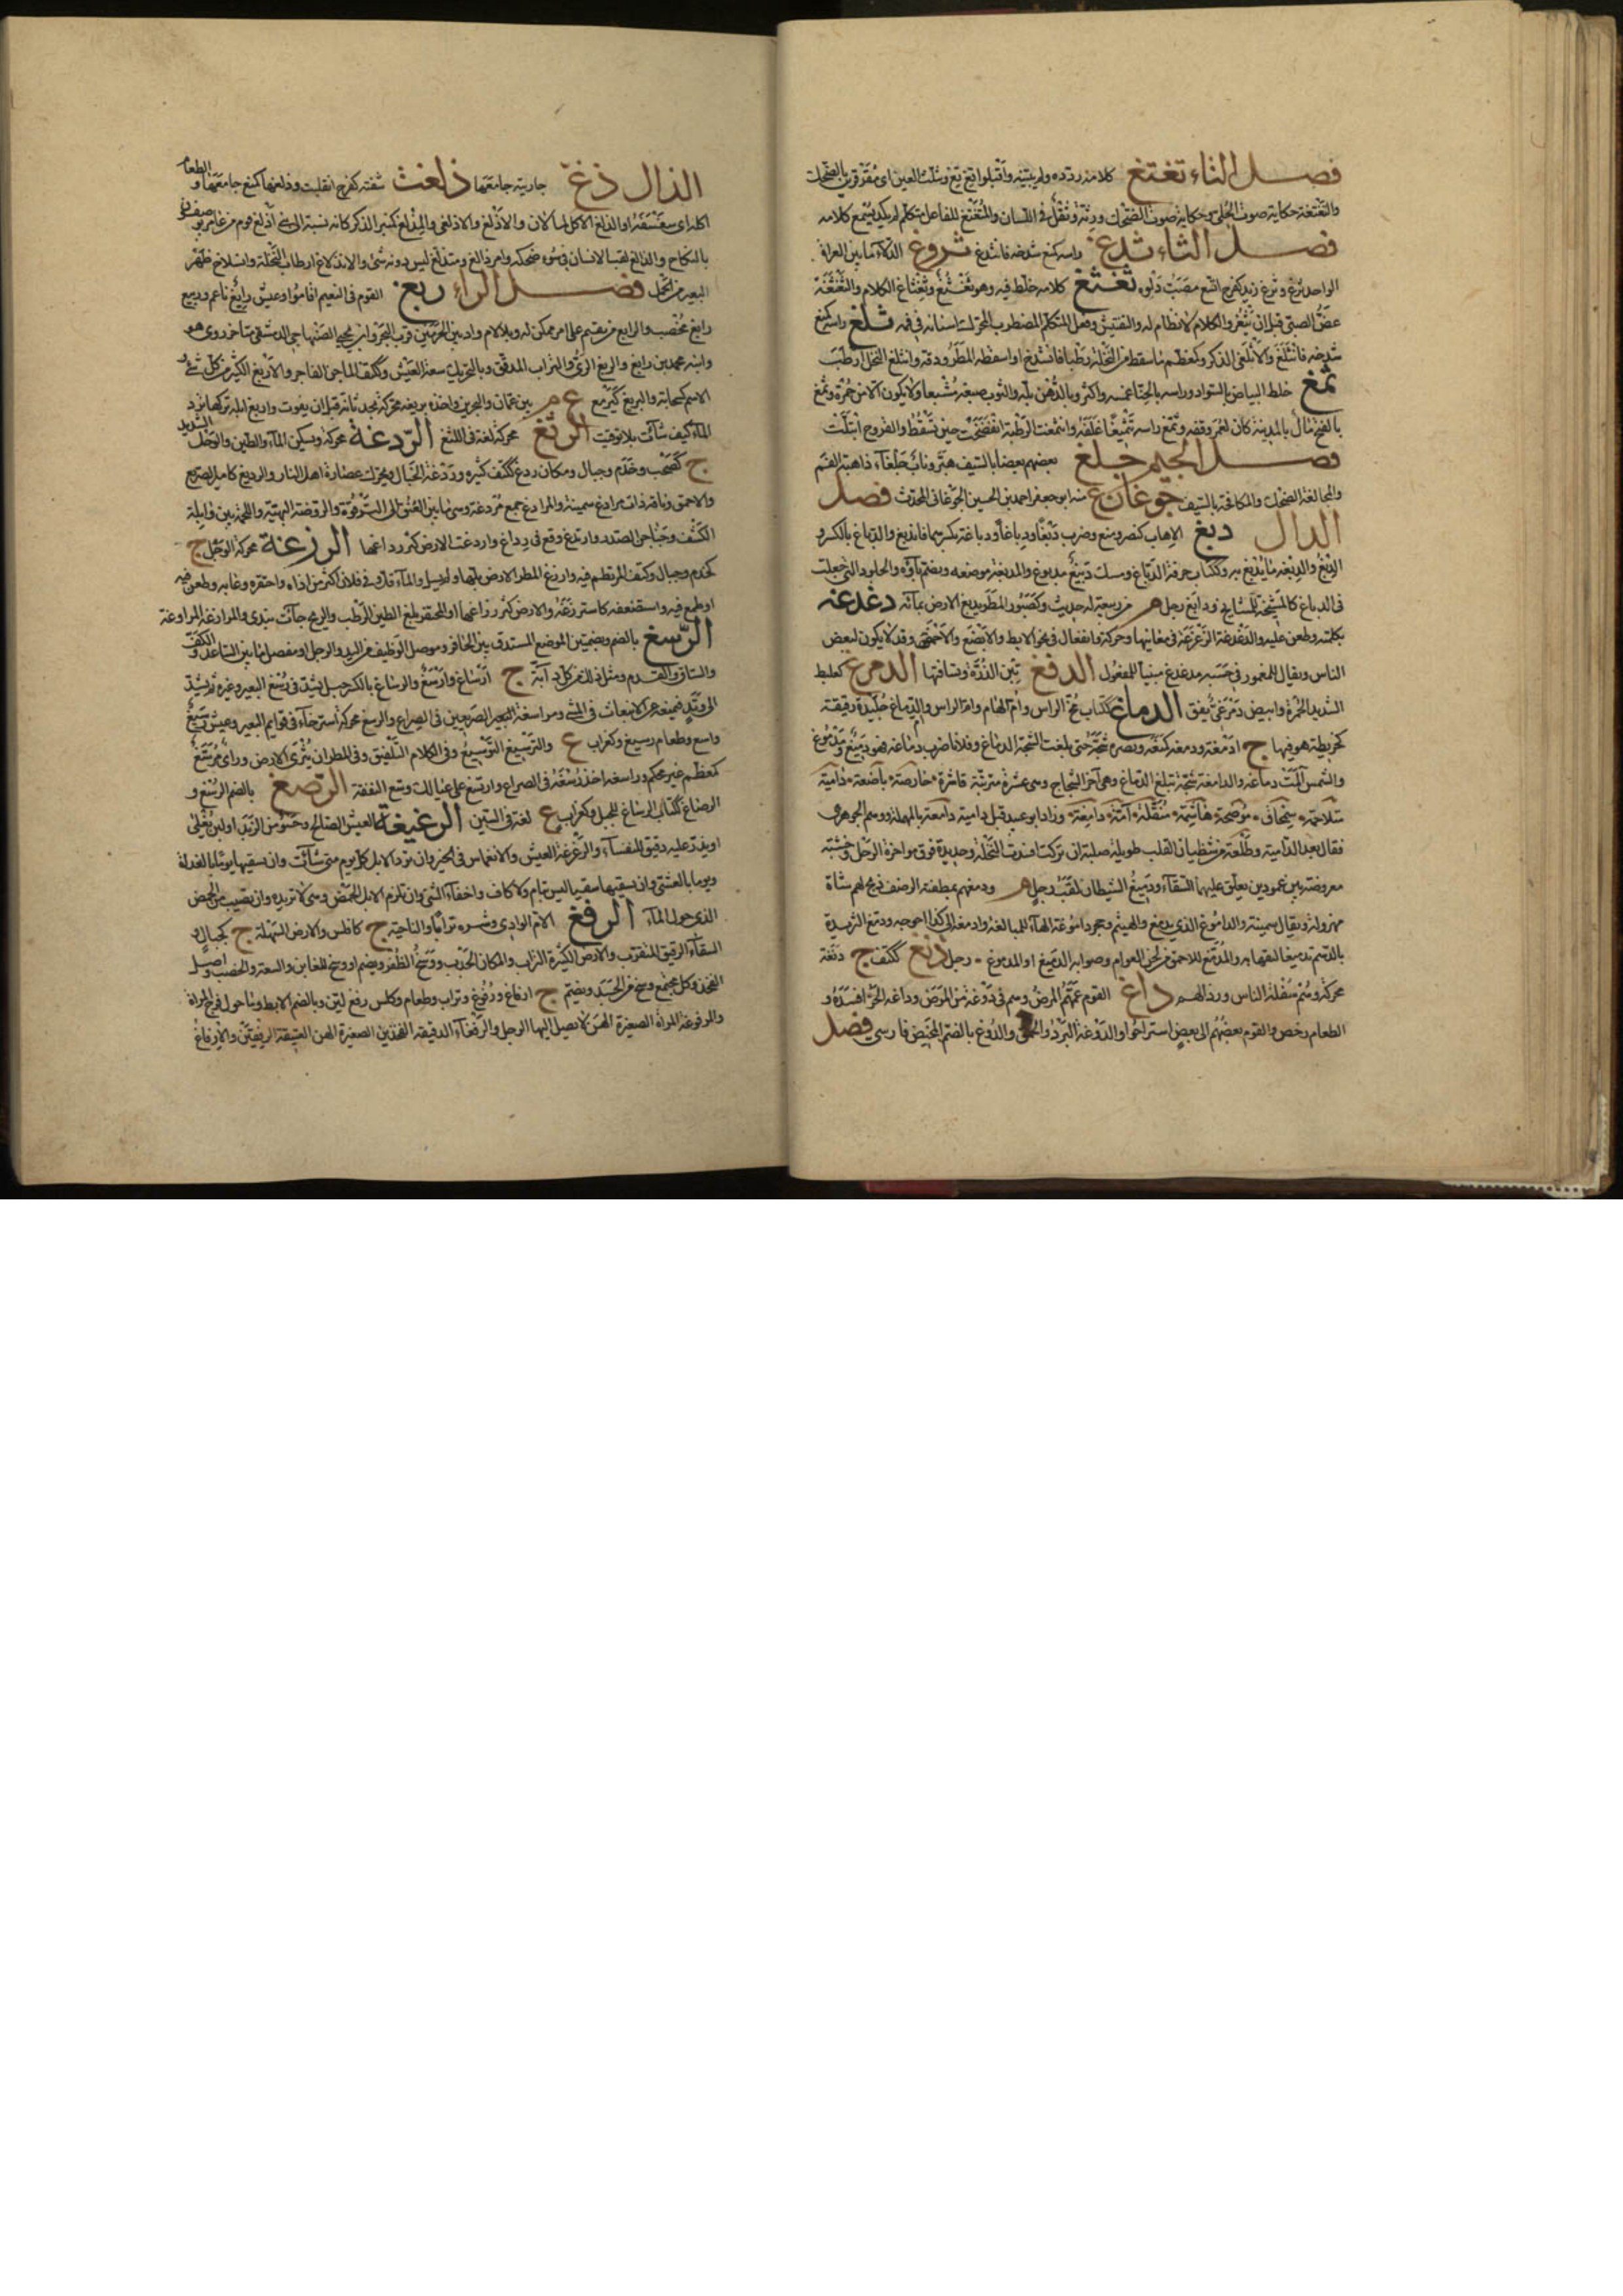 فصل التاء تغتغ كلامه ردده ولم يبينه واقبلوا تغ تغ وتثلث الغين اى مقرقرين بالضحك
والتغتغة حكاية صوت الحلى وحكاية صوت الضحك ورتة وثقل فى اللسان والمتغتغ للفاعل متكلم لم يكد يسمع كلامه
فصل الثاء ثدغ راسه كمنع شدخه فانثدغ ثروغ الدلاء ما بين العراقى
الواحد ثرغ وثرغ زيد كفرح اتسع مصب دلوه ثغثغ كلامه خلط فيه وهو ثغثغ وثغثاغ الكلام والثغثغة
عض الصبى قبل ان يثغر والكلام لا نظام له والتفتيش وفعل المتكلم المضطرب المحرك اسنانه فى فيه ثلغ راسه كمنع
شدخه فانثلغ والاثلغى الذكر وكمعظم ما سقط من النخلة رطبا فانشدخ او اسقطه المطر ودقه وانثلغ النخل ارطب
ثمغ خلط البياض بالسواد وراسه بالحنا غمسه واكثر وبالدهن بله والثوب صبغه مشبعا ولا يكون الا من حمرة وثمغ
بالفتح مال بالمدينة كان لعمر وقفه وثمغ راسه تثميغا غلفه وانثمغت الرطبة انفضخت حين تسقط والقروح ابتلت
فصل الجيم جلغ بعضهم بعضا بالسيف هبر وناب جلغاء ذاهبة الفم
والمجالغة الضحك والمكافحة بالسيف جوغان ع منه ابو جعفر احمد بن الحسين الجوغانى المحدث فصل
الدال دبغ الاهاب كنصر ومنع وضرب دبغا ودباغا ودباغة بكسرهما فاندبغ والدباغ بالكسر و
الدبغ والدبغة ما يدبغ به وككتاب حرفة الدباغ ومسك دبيغ مدبوغ والمدبغة موضعه ويضم باؤه والجلود التى جعلت
فى الدباغ كالمشيخة للمشايخ ودابغ رجل م من ربيعة له حديث وكصبور المطر يدبغ الارض بمائه دغدغه
بكلمة وطعن عليه والدغدغة الزغزغة فى معانيها وحركة وانفعال فى نحو الابط والابضع والاخمص وقد لا يكون لبعض
الناس ويقال للمغمور فى حسبه مدغدغ مبنيا للمفعول الدفغ تبن الذرة ونسافتها الدمرغ كعلبط
الشديد الحمرة وابيض دمرغى يقق الدماغ ككتاب مخ الراس وام الهام وام الراس وام الدماغ جليدة رقيقة
كخريطة هو فيها ج ادمغة ودمغه كمنعه ونصره شجه حتى بلغت الشجة الدماغ وفلانا ضرب دماغه فهو دميغ ومدموغ
والشمس المت دماغه والدامغة شجة تبلغ الدماغ وهى آخر الشجاج وهى عشرة مترتبة قاشرة حارصة باضعة دامية
متلاحمة سمحاق موضحة هاشمة منقلة آمة دامغة وزاد ابو عبيد قبل دامية دامعة بالمهملة ووهم الجوهرى
فقال بعد الدامية وطلعة من شظيات القلب طويلة صلبة ان تركت افسدت النخلة وحديدة فوق مؤخرة الرحل وخشبة
معروضة بين عمودين يعلق عليهما السقاء ودميغ الشيطان لقب رجل م ودمغهم بمطفئة الرضف ذبح لهم شاة
مهزولة ويقال سمينة والداموغ الذى يدمغ ويهشم وحجر داموغة الهاء للمبالغة وادمغه الى كذا احوجه ودمغ الثريدة
بالدسم تدميغا لبقها به والمدمغ للاحمق من لحن العوام وصوابه الدميغ او المدموغ رجل دنغ ككتف ج دنغة
محركة وهم سفلة الناس ورذالهم داغ القوم عمهم المرض وهم فى دوغة من المرض وداغه الحر افسده و
الطعام رخص والقوم بعضهم الى بعض استراحوا والدوغة البرد والحمق والدوغ بالضم المخيض فارسى فصل
الذال ذغ جاريته جامعها ذلغت شفته كفرح انقلبت وذلغها كمنع جامعها والطعام
اكله او سغسغه او الذلغ الاكل لما لان والاذلغ والاذلغى والمذلغ كمنبر الذكر كانه نسبة الى بنى اذلغ قوم من عامر يوصفون
بالنكاح والذالغ لقب الانسان فى سوء ضحكه وامر ذالغ ومتذلغ ليس دونه شئ والانذلاغ ارطاب النخلة وانسلاخ ظهر
البعير من الحمل فصل الراء ربغ القوم فى النعيم اقاموا وعيش رابغ ناعم وربيع
رابغ مخصب والرابغ من يقيم على امر ممكن له وبلا لام واد بين الحرمين قرب البحر وابن يحيى الصنهاجى الدمشقى متاخر روى هو
وابنه محمد بن رابغ والربغ الرى والتراب المدقق وبالتحريك سعة العيش وككتف الماجن الفاجر والاربغ الكثير من كل شئ و
الاسم كسحابة واليربغ كيرمع ع م بين عمان والبحرين واخذه بربغه محركة بحدثانه قبل ان يفوت واربغ ابله تركها ترد
الماء كيف شاءت بلا توقيت الرثغ محركة لغة فى اللثغ الردغة محركة ويسكن الماء والطين والوحل الشديد
ج كصحب وخدم وجبال ومكان ردغ ككتف كثيره وردغة الخبال ويحرك عصارة اهل النار والرديغ كامير الصريع
والاحمق وناقة ذات مرادغ سمينة والمرادغ جمع مردغة وهى ما بين العنق الى الترقوة والروضة البهية واللحمة بين وابلة
الكتف وجناجن الصدر وارتدغ وقع فى رداغ واردغت الارض كثر رداغها الرزغة محركة الوحل ج
كخدم وجبال وككتف المرتطم فيه وارزغ المطر الارض بلها ولم يسل والماء قل وفى فلان اكثر من اذاه واحتقره وعابه وطعن فيه
او طمع فيه واستضعفه كاسترزغه والارض كثر رزاغها او المحتفر بلغ الطين الرطب والريح جاءت بندى والمرازغة المراوغة
الرسغ بالضم وبضمتين الموضع المستدق بين الحافر وموصل الوظيف من اليد والرجل او مفصل ما بين الساعد والكف
والساق والقدم ومثل ذلك من كل دابة ج ارساغ وارسغ والرساغ بالكسر حبل يشد فى رسغ البعير وغيره ثم يشد
الى وتد فيمنعه عن الانبعاث فى المشى ومراسغة البعير الصريعين فى الصراع والرسغ محركة استرخاء فى قوائم البعير وعيش رسيغ
واسع وطعام رسيغ وكغراب ع والترسيغ التوسيع وفى الكلام التلفيق وفى المطر ان يثرى الارض وراى مرسغ
كمعظم غير محكم وراسغه اخذ رسغه فى الصراع وارتسغ على عيالك وسع النفقة الرصغ بالضم الرسغ و
الرصاغ ككتاب الرساغ للحبل وكغراب ع لغة فى السين الرغيغة العيش الصالح وحسو من الزبد او لبن يغلى
او يذر عليه دقيق للنفساء والرغرغة رفاغة العيش والانغماس فى الخير وان ترد الابل كل يوم متى شاءت وان يسقيها يوما بالغداة
ويوما بالعشى وان يسقيها سقيا ليس بتام ولا كاف واخفاء الشئ وان تلزم الابل الحمض وهى لا تريده وان تصيب من الحمض
الذى حول الماء الرفغ الام الوادى وشره ترابا والناحية ج كافلس والارض السهلة ج كجبال و
السقاء الرقيق المقارب والارض الكثيرة التراب والمكان الجدب ووسخ الظفر ويضم او وسخ المغابن والسعة والخصب واصل
الفخذ وكل مجتمع وسخ من الجسد ويضم ج ارفاغ ورفوغ وتراب وطعام وكلس رفغ لين وبالضم الابط وما حول فرج المراة
والمرفوغة المراة الصغيرة الهن لا يصل اليها الرجل والرفغاء الدقيقة الفخذين الصغيرة الهن العميقة الرفغين والارفاغ